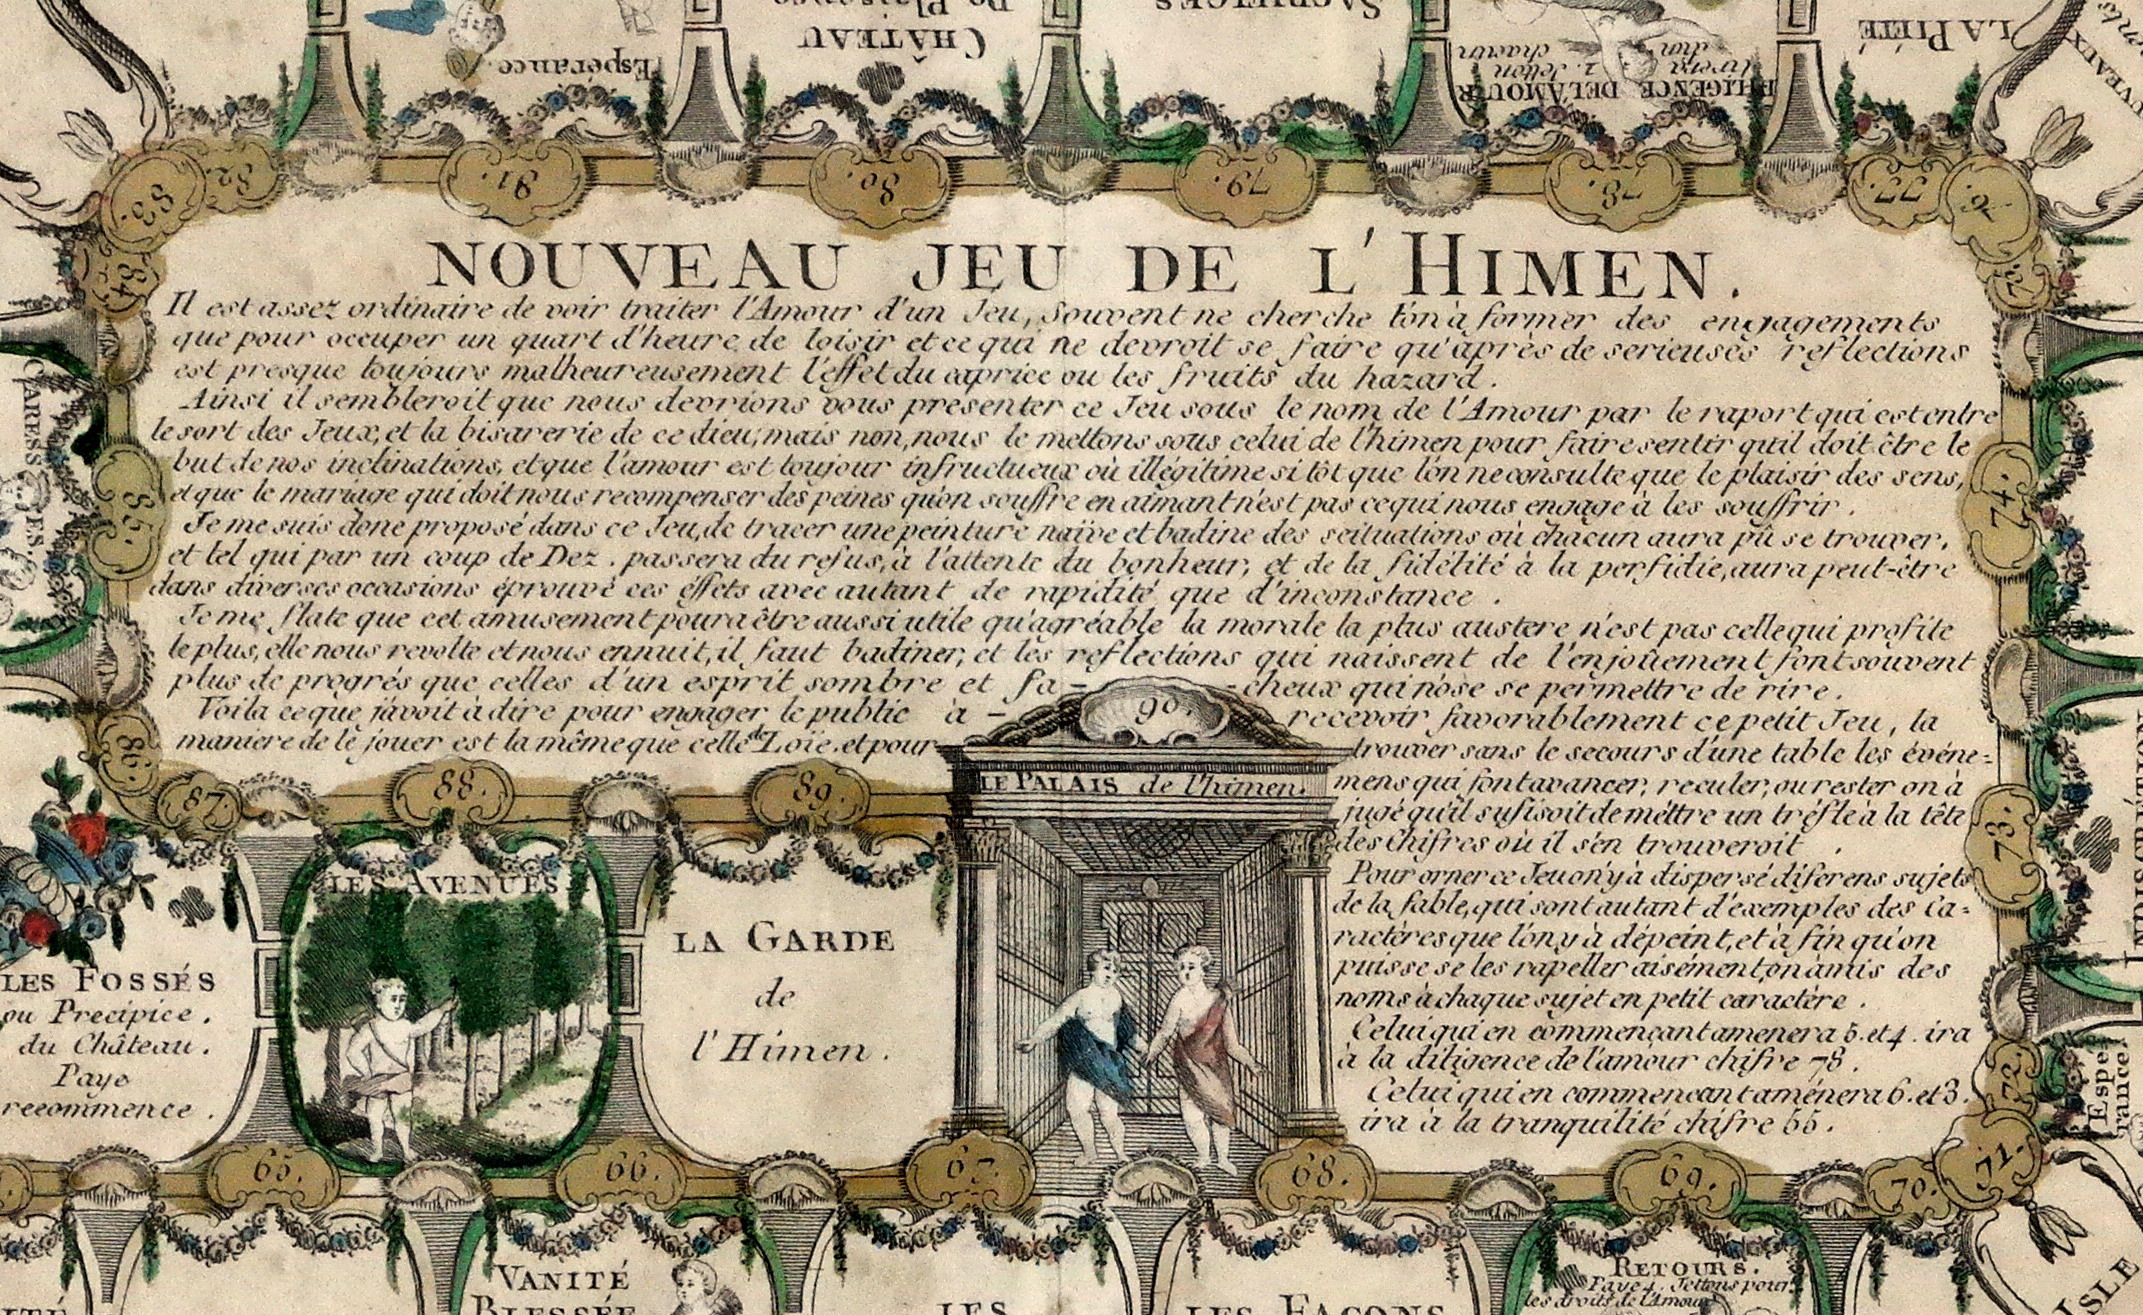 Espérance.
CHÂTEAU
De Plaisance
SACRIFICES
DILIGENCE DE L'AMOUR
tirera 2. Jetton
d'un chacun
LA PIÉTÉ
83.
82.
81.
80.
79.
78.
77.
84.
CARESSES.
NOUVEAU JEU DE L'HIMEN.
Il est assez ordinaire de voir traiter l'Amour d'un Jeu, Souvent ne cherche t'on à former des engagements
que pour occuper un quart d'heure de loisir et ce qui ne devroit se faire qu'après de serieuses reflections
est presque toujours malheureusement l'effet du caprice ou les fruits du hazard.
Ainsi il sembleroit que nous devrions vous presenter ce Jeu sous le nom de l'Amour par le raport qui est entre
le sort des Jeux, et la bisarerie de ce dieu; mais non, nous le mettons sous celui de l'himen pour faire sentir qu'il doit être le
but de nos inclinations, et que l'amour est toujour infructueux où illégitime si tôt que l'on ne consulte que le plaisir des sens,
et que le mariage qui doit nous recompenser des peines qu'on souffre en aimant n'est pas ce qui nous engage à les souffrir.
Je me suis donc proposé dans ce Jeu, de tracer une peinture naïve et badine des scituations où chacun aura pû se trouver,
et tel qui par un coup de Dez. passera du refus, à l'attente du bonheur, et de la fidélité à la perfidie, aura peut-être
dans diverses occasions éprouvé ces éffets avec autant de rapidité que d'inconstance.
Je me flate que cet amusement poura être aussi utile qu'agréable la morale la plus austere n'est pas celle qui profite
le plus, elle nous revolte et nous ennuit, il faut badiner, et les reflections qui naissent de l'enjoûement font souvent
plus de progrés que celles d'un esprit sombre et fâ- -cheux qui n'ose se permettre de rire.
Voila ce que j'avoit à dire pour engager le public à - recevoir favorablement ce petit Jeu, la
maniere de le jouer est la même que celle de Loïe. et pour trouver sans le secours d'une table les événe=
mens qui font avancer, reculer, ou rester on à
jugé qu'il sufisoit de méttre un tréfle à la tête
des chifres où il s'en trouveroit.
Pour orner ce Jeu on y à dispersé diferens sujets
de la fable, qui sont autant d'exemples des ca=
ractères que l'on y à dépeint, et à fin qu'on
puisse se les rapeller aisément, on à mis des
noms à chaque sujet en petit caractère.
Celui qui en commençant amenera 5. et 4. ira
à la diligence de l'amour chifre 78.
Celui qui en commencant aménera 6. et 3.
ira à la tranquilité chifre 55.
85.
86.
87.
88.
89.
90.
LE PALAIS de l'himen.
74.
73.
72.
INDISCRÉTION
l'Espe
rance
LES FOSSÉS
ou Precipice.
du Château.
Paye
recommence.
LES AVENUES
LA GARDE
de
l'Himen.
65.
66.
67.
68.
69.
70.
71.
VANITÉ
BLESSÉE
LES
LES FAÇONS
RETOURS.
Paye 4. Jettons pour
les droits de l'Amour
ISLE